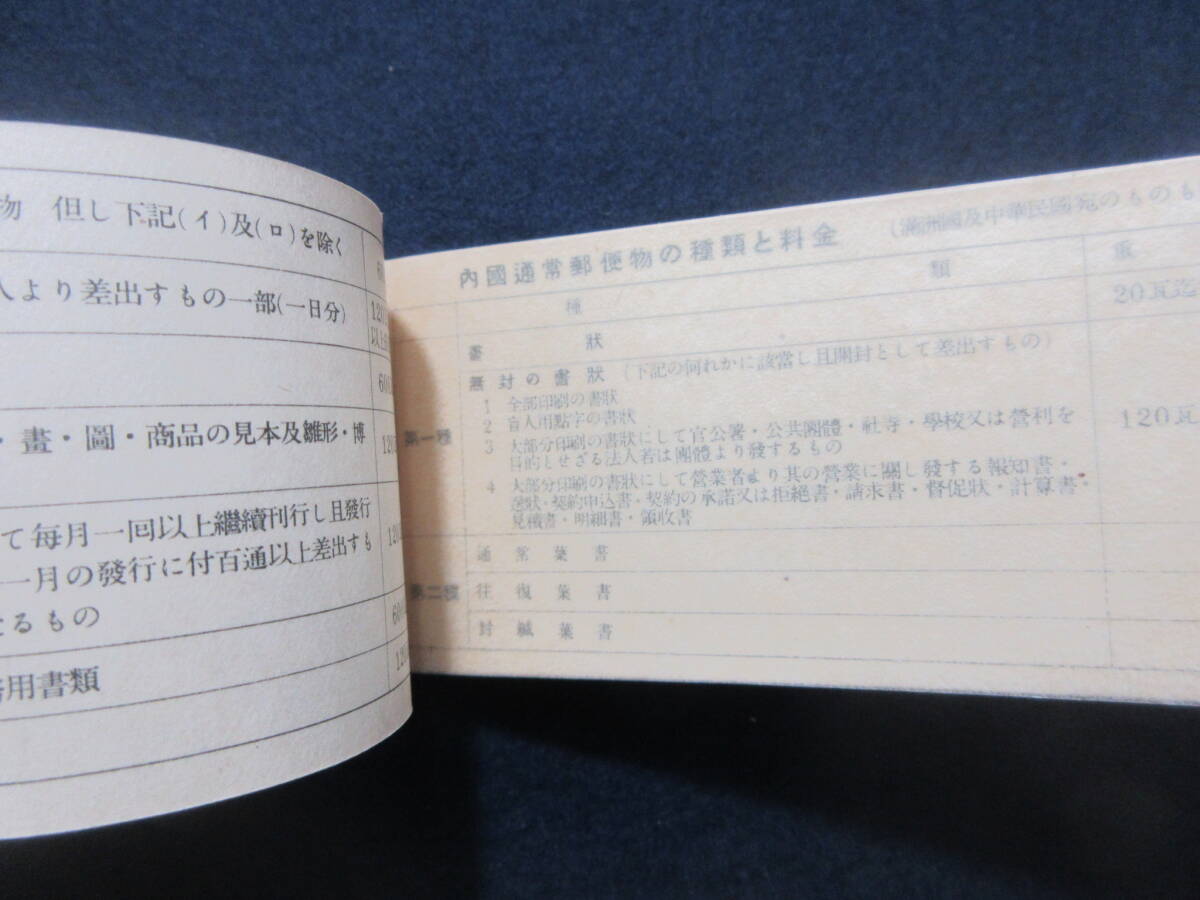 物 但し下記(イ)及(ロ)を除く
人より差出すもの一部(一日分)
120
以上
600
・畫・圖・商品の見本及雛形・博
120
て每月一回以上繼續刊行し且發行
一月の發行に付百通以上差出すも
るもの
120
60
用書類
120
內國通常郵便物の種類と料金
(滿洲國及中華民國宛のものも
種 類
重
第一種
書 狀
20瓦迄
無封の書狀 (下記の何れかに該當し且開封として差出すもの)
1 全部印刷の書狀
2 盲人用點字の書狀
3 大部分印刷の書狀にして官公署・公共團體・社寺・學校又は營利を
目的とせざる法人若は團體より發するもの
4 大部分印刷の書狀にして營業者より其の營業に關し發する報知書・
送狀・契約申込書・契約の承諾又は拒絕書・請求書・督促狀・計算書・
見積書・明細書・領收書
120瓦
第二種
通常葉書
往復葉書
封緘葉書